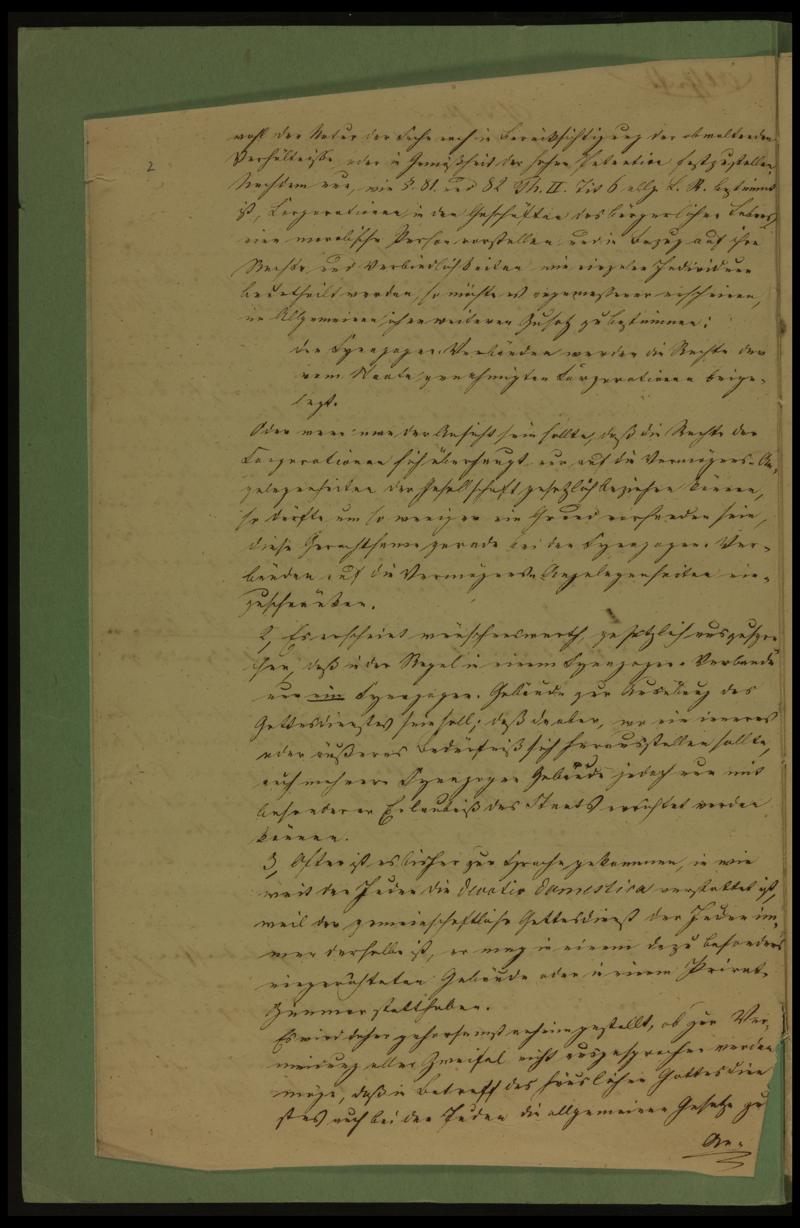 2
wohl der Natur der Sache nach in Berücksichtigung der obwaltenden
Verhältnisse, oder in Gemäßheit der hohen Intention festzustellen.
Nachdem nun, wie §. 81 und 82 Th. II. Tit 6 allg. L. R. bestimmt
ist, Corporationen in den Geschäften des bürgerlichen Lebens
eine moralische Person vorstellen und in Bezug auf ihre
Rechte und Verbindlichkeiten wie einzelne Individuen
beurtheilt werden, so möchte es angemessener erscheinen,
im Allgemeinen ohne weiteren Zusatz zu bestimmen:
den Synagogen-Verbänden werden die Rechte der
vom Staate genehmigten Corporationen beige-
legt.
Oder wenn man der Ansicht sein sollte, daß die Rechte der
Corporationen sich überhaupt nur auf die Vermögens-An-
gelegenheiten der Gesellschaft gesetzlich beziehen können,
so dürfte um so weniger ein Grund vorhanden sein,
diese Gerechtsame gerade bei den Synagogen-Ver-
bänden auf die Vermögens-Angelegenheiten ein-
zuschränken.
2, Es erscheint wünschenswerth gesetzlich auszuspre-
chen, daß in der Regel in einem Synagogen-Verbande
nur ein Synagogen-Gebäude zur Ausübung des
Gottesdienstes sein soll; daß da aber, wo ein inneres
oder äußeres Bedürfniß sich herausstellen sollte,
auch mehrere Synagogen Gebäude jedoch nur mit
besonderer Erlaubniß des Staats errichtet werden
können.
3, Öfter ist es bisher zur Sprache gekommen, in wie
weit den Juden die devotio domestica verstattet ist,
weil der gemeinschaftliche Gottesdienst der Juden im-
mer derselbe ist, er mag in einem dazu besonders
eingerichteten Gebäude oder in einem Privat-
Zimmer statthaben.
Es wird daher gehorsamst anheimgestellt, ob zur Ver-
meidung aller Zweifel nicht ausgesprochen werden
möge, daß in Betreff des häuslichen Gottesdien
stes auch bei den Juden die allgemeinen Gesetze zur
An-